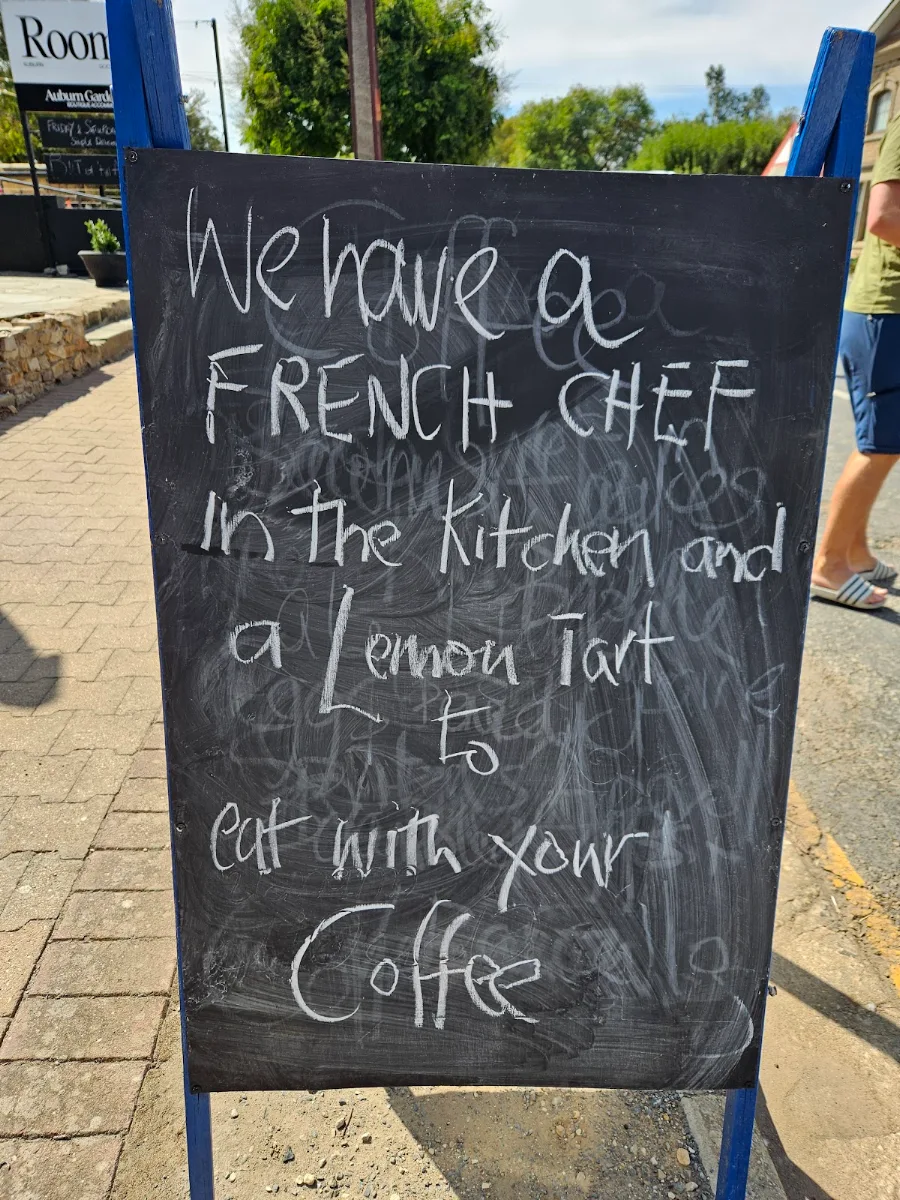 Room
Auburn Garde
FRIDAY & SATURD
We have a
FRENCH CHEF
In the Kitchen and
a Lemon Tart
to
eat with your
Coffee